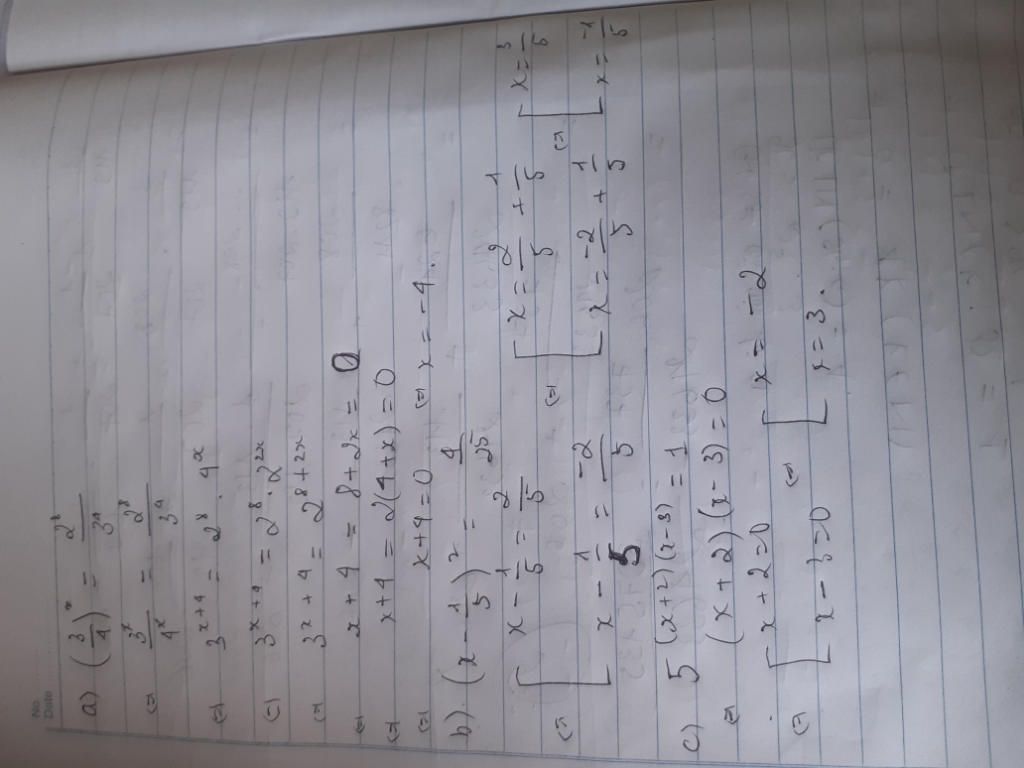 No.
Date
a) (3/4)^x = 2^8/3^4
(=) 3^x/4^x = 2^8/3^4
(=) 3^(x+4) = 2^8 . 4^x
(=) 3^(x+4) = 2^8 . 2^(2x)
(=) 3^(x+4) = 2^(8+2x)
(=) x+4 = 8+2x = 0
(=) x+4 = 2(4+x) = 0
(=) x+4 = 0 (=) x = -4.
b). (x - 1/5)^2 = 4/25
(=) [ x - 1/5 = 2/5 (=) [ x = 2/5 + 1/5 (=) [ x = 3/5
x - 1/5 = -2/5 x = -2/5 + 1/5 x = -1/5
c) 5^((x+2)(x-3)) = 1
(=) (x+2).(x-3) = 0
(=) [ x+2=0 (=) [ x = -2
x-3=0 x = 3.